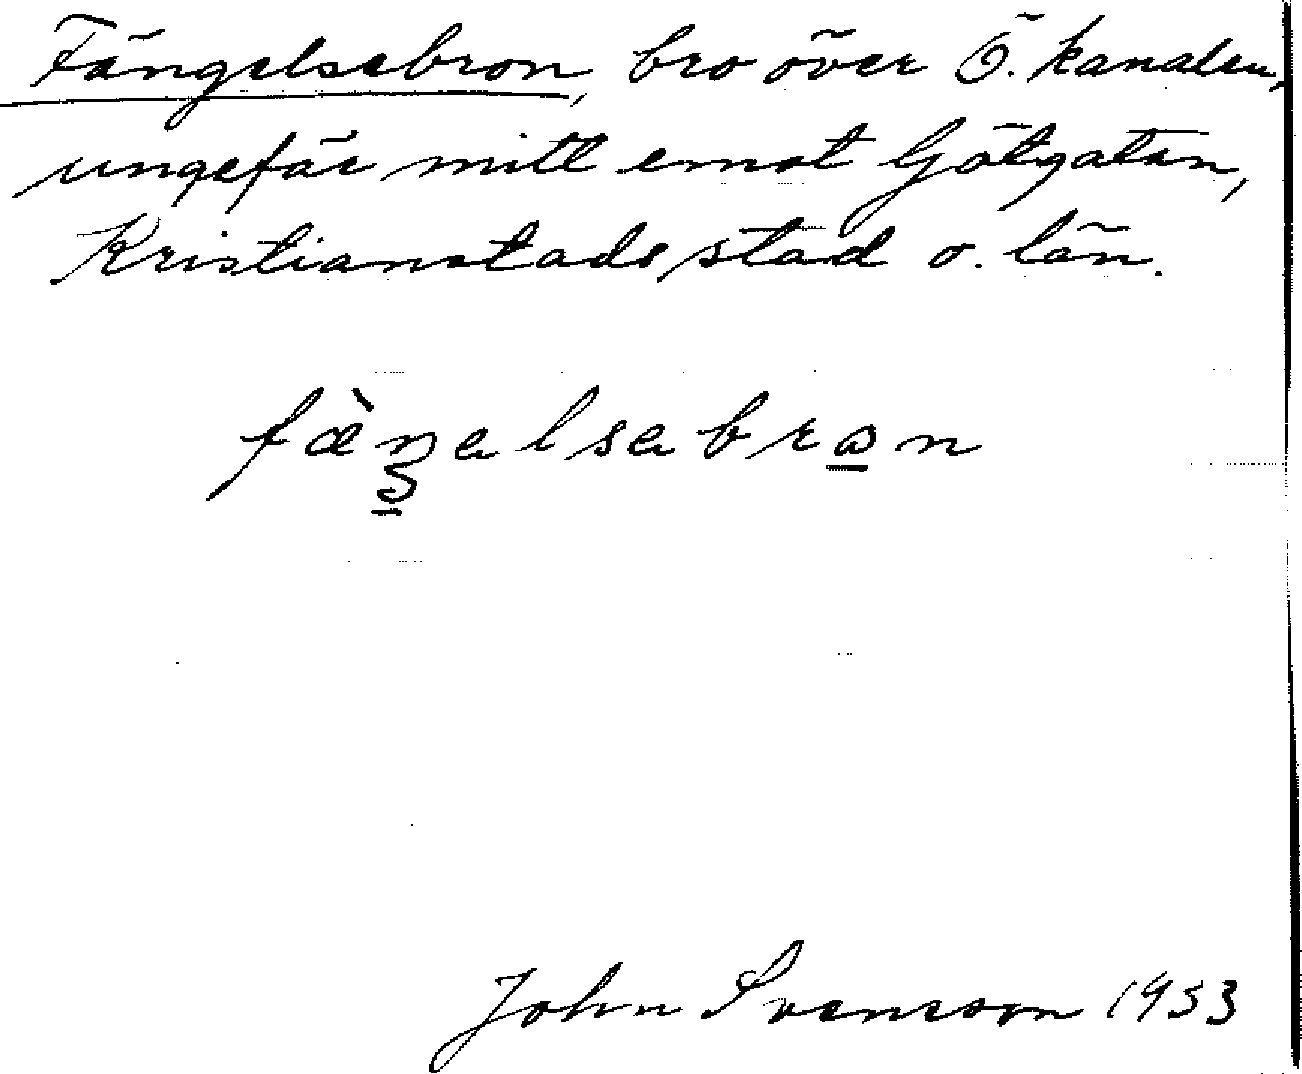 Fängelsebron, bro över Ö. kanalen,
ungefär mitt emot Götgatan,
Kristianstads stad o. län.
fæ̀ŋelsebron
John Svenson 1953